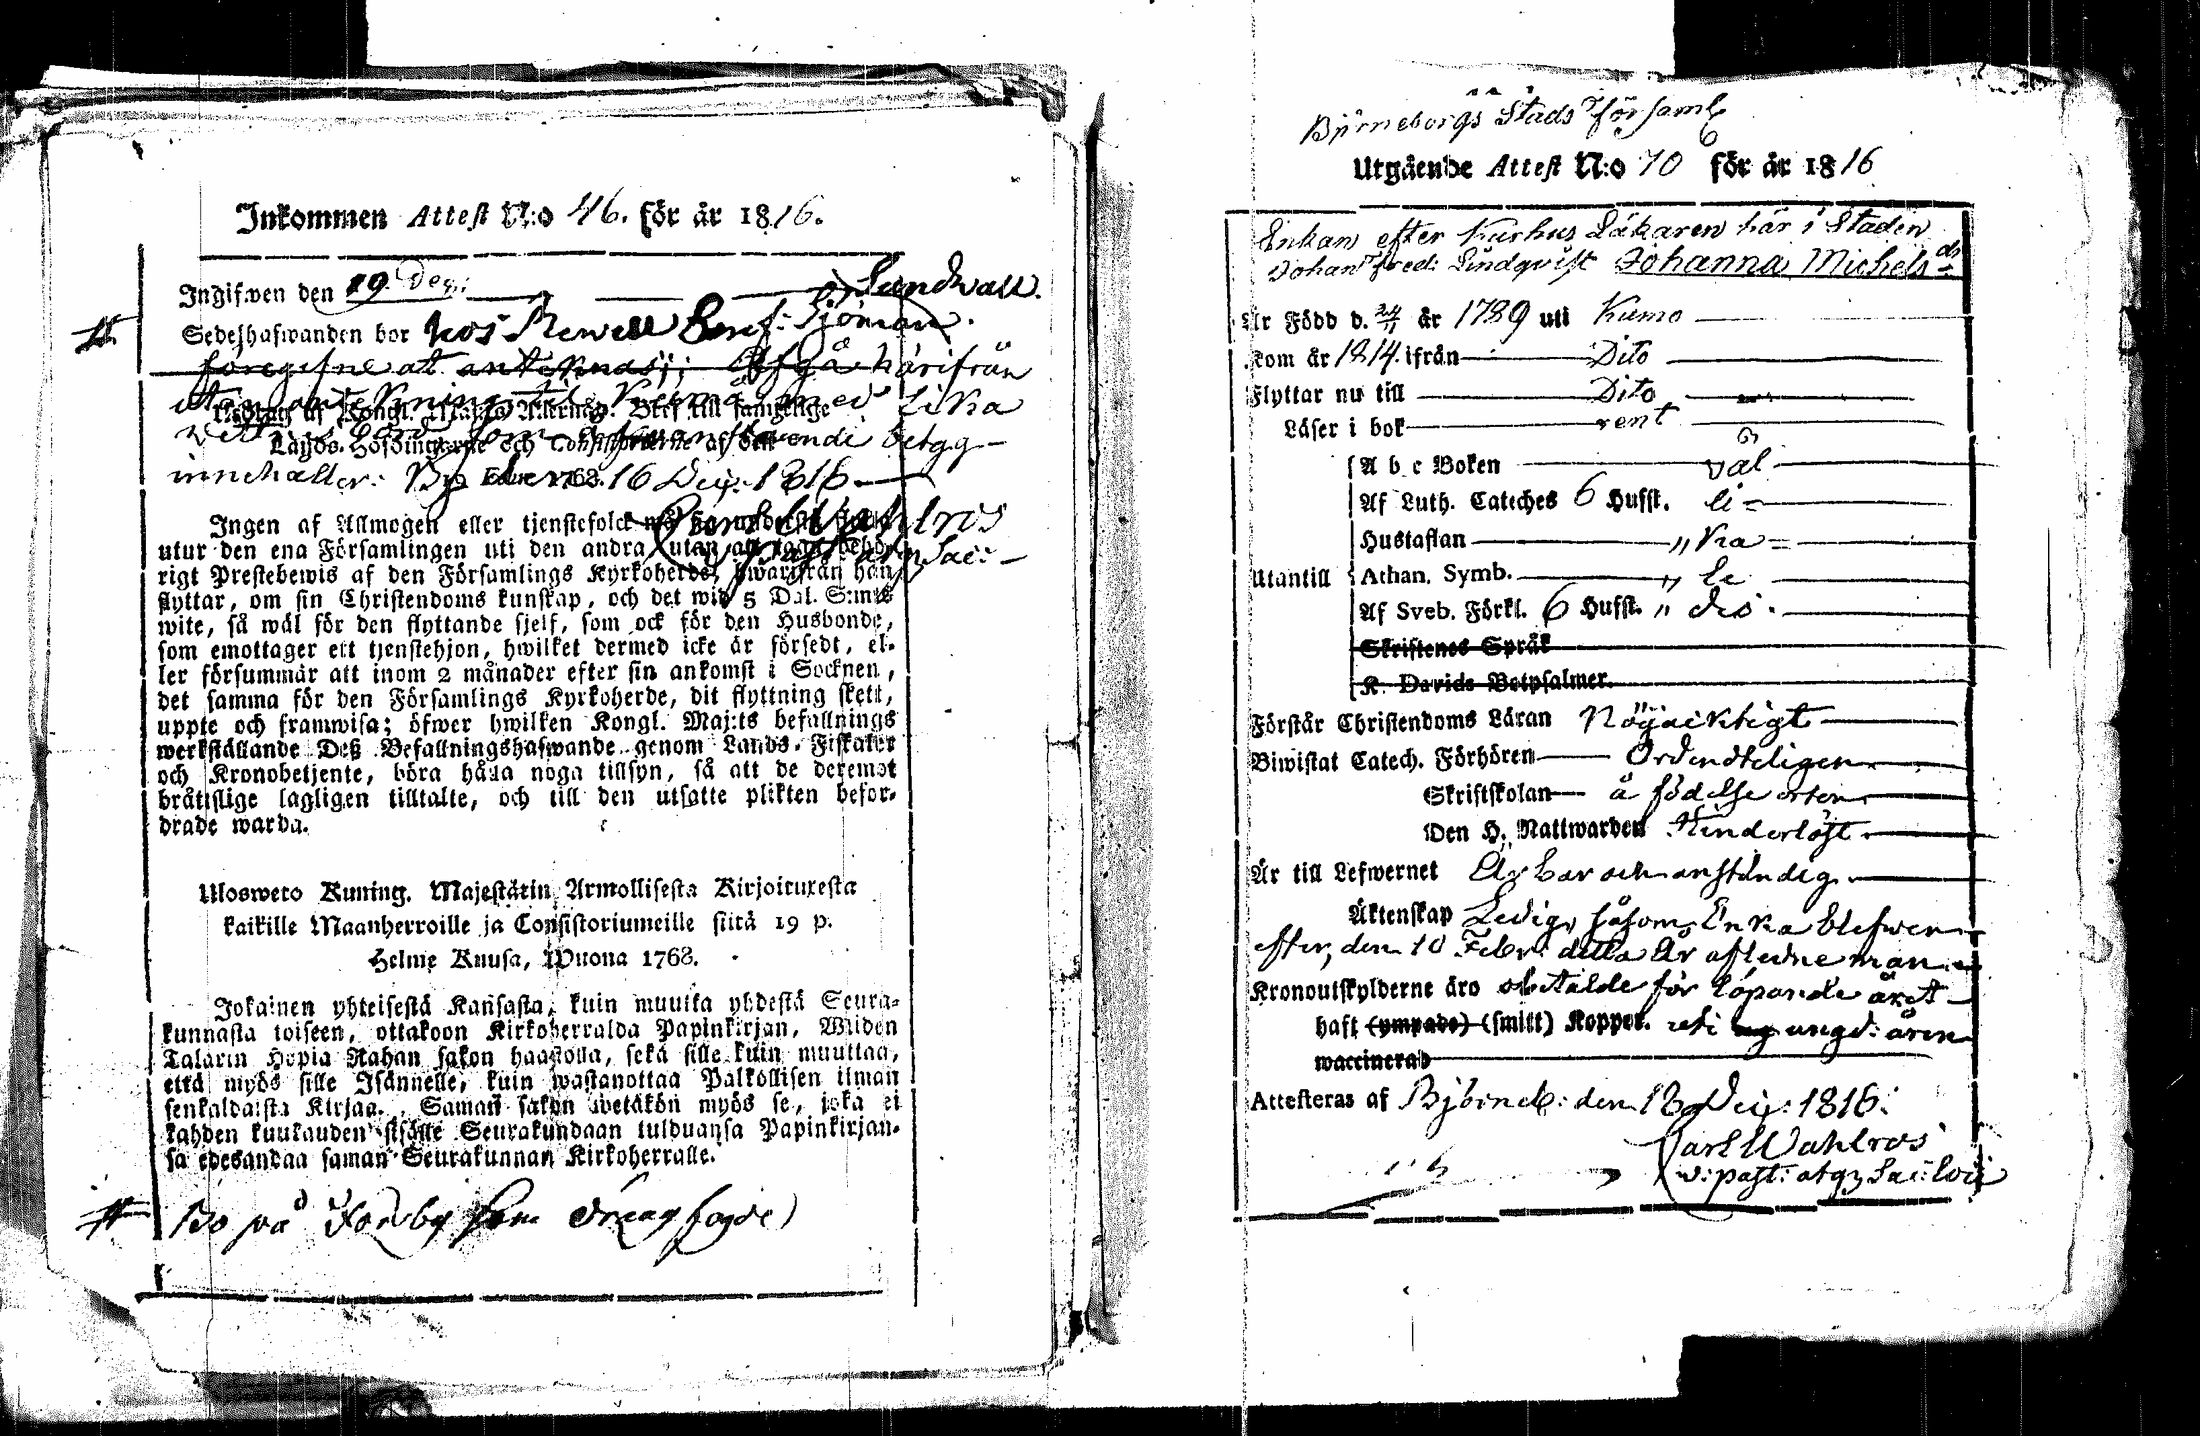 Inkommen Attest N:o 46. för år 1816.
Ingifwen den 19 Dec:
Sundwall.
Sedelhafwanden bor hos Rewell
Sjöman.
föregifne at antecknas; Afgå härifrån
utan anteckning til Kumo med lika
Utdrag af Kongl. Maj:ts Allernåd. Bref till samtelige
Landshöfdingarne och Consistorierne af den
innehåller: 16 Dec: 1816
Febr. 1763.
Carl Wahlros
Ingen af Allmogen eller tjenstefolck
utur den ena Församlingen uti den andra utan att
rigt Prestebewis af den Församlings Kyrkoherde, hwarifrån han
flyttar, om sin Christendoms kunskap, och det wid 5 Dal. S:mts
wite, så wäl för den flyttande sjelf, som ock för den Husbonde,
som emottager ett tjenstehjon, hwilket dermed icke är försedt, el-
ler försummar att inom 2 månader efter sin ankomst i Socknen,
det samma för den Församlings Kyrkoherde, dit flyttning skett,
uppte och framwisa; öfwer hwilken Kongl. Maj:ts befallnings
werkställande Deß Befallningshafwande genom Lands-Fiskaler
och Kronobetjente, böra hålla noga tillsyn, så att de deremot
bråtislige lagligen tilltalte, och till den utsatte plikten befor-
drade warda.
Ulosweto Kuning. Majestätin Armollisesta Kirjoituxesta
kaikille Maanherroille ja Consistoriumeille siitä 19 p.
Helme Kuusa, Wuona 1763.
Jokainen yhteisestä Kansasta, kuin muutta yhdestä Seura-
kunnasta toiseen, ottakoon Kirkoherralda Papinkirjan, Wiiden
Talarin Hopia Rahan sakon haastolla, sekä sille kuin muuttaa,
että myös sille Isännelle, kuin wastanottaa Palkollisen ilman
senkaldaista Kirjaa. Saman sakon wetäkön myös se, joka ei
kahden kuukauden sisälle Seurakundaan tulduansa Papinkirjan-
sa edesandaa saman Seurakunnan Kirkoherralle.
Bo på Forsby som drengfogde)
Björneborgs Stads Församl
Utgående Attest N:o 70 för år 1816
Enkan efter Kurhus Läkaren här i Staden
Johan Fred: Lindqvist Johanna Michelsdr
Är Född d. 24/11 år 1789 uti Kumo
Kom år 1814. ifrån Dito
Flyttar nu till Dito
Läser i bok rent
A b c Boken väl
Af Luth. Cateches 6 Hufst. li=
Hustaflan „ ka=
Utantill Athan. Symb. „ le
Af Sveb. Förkl. 6 Hufst. „ des.
Skriftenes Språk
K. Davids Botpsalmer.
Förstår Christendoms Läran Nöjacktigt
Biwistat Catech. Förhören Ordendteligen
Skriftskolan å födelse orten
Den H. Nattwarden Hinderlöst
Är till Lefwernet Ärbar och anständig
Äktenskap Ledig, såsom Enka blefwen
efter, den 10 Febr: detta År aflidne man
Kronoutskylderne äro obetalde för löpande året
haft (ympade) (smitt) Koppor. uti ungd: åren
waccinerad
Attesteras af Björneb: den 18 Dec: 1816.
Carl Wahlros
v: past: atq, Sac: loci